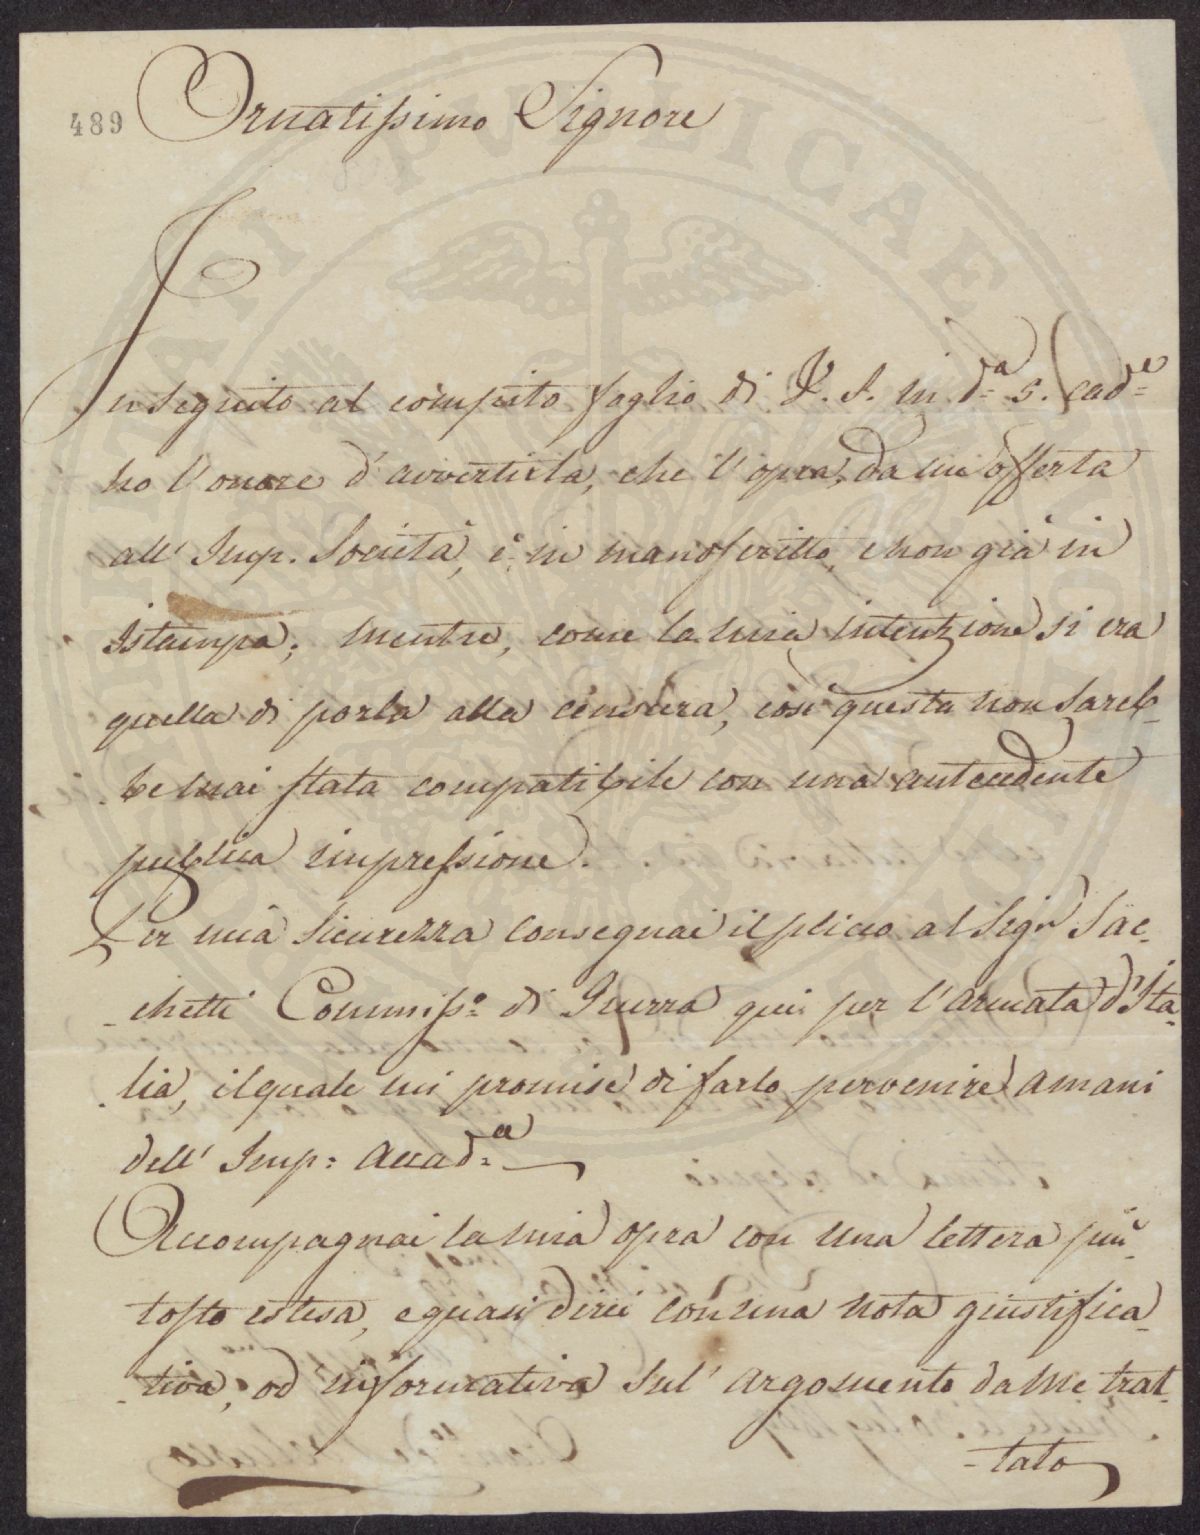 489 Ornatissimo Signore
In seguito al compito foglio di V. S. in d.ª 5. Cad.e
ho l'onore d'avvertirla, che l'opra, da me offerta
all' Imp. Società, è in manoscritto, e non già in
Istampa; mentre, come la mia intenzione si era
quella di porla alla censura, così questa non sareb-
be mai stata compatibile con una antecedente
publica impressione.
Per mia sicurezza consegnai il plico al Sigr Sac-
chetti Commiss.º di Guerra qui per l'armata d'Ita-
lia, il quale mi promise di farlo pervenire a mani
dell' Imp: Accad.a
Accompagnai la mia opra con una lettera piu-
tosto estesa, e quasi direi con una nota giustifica-
tiva, od informativa sul' argomento da me trat-
tato